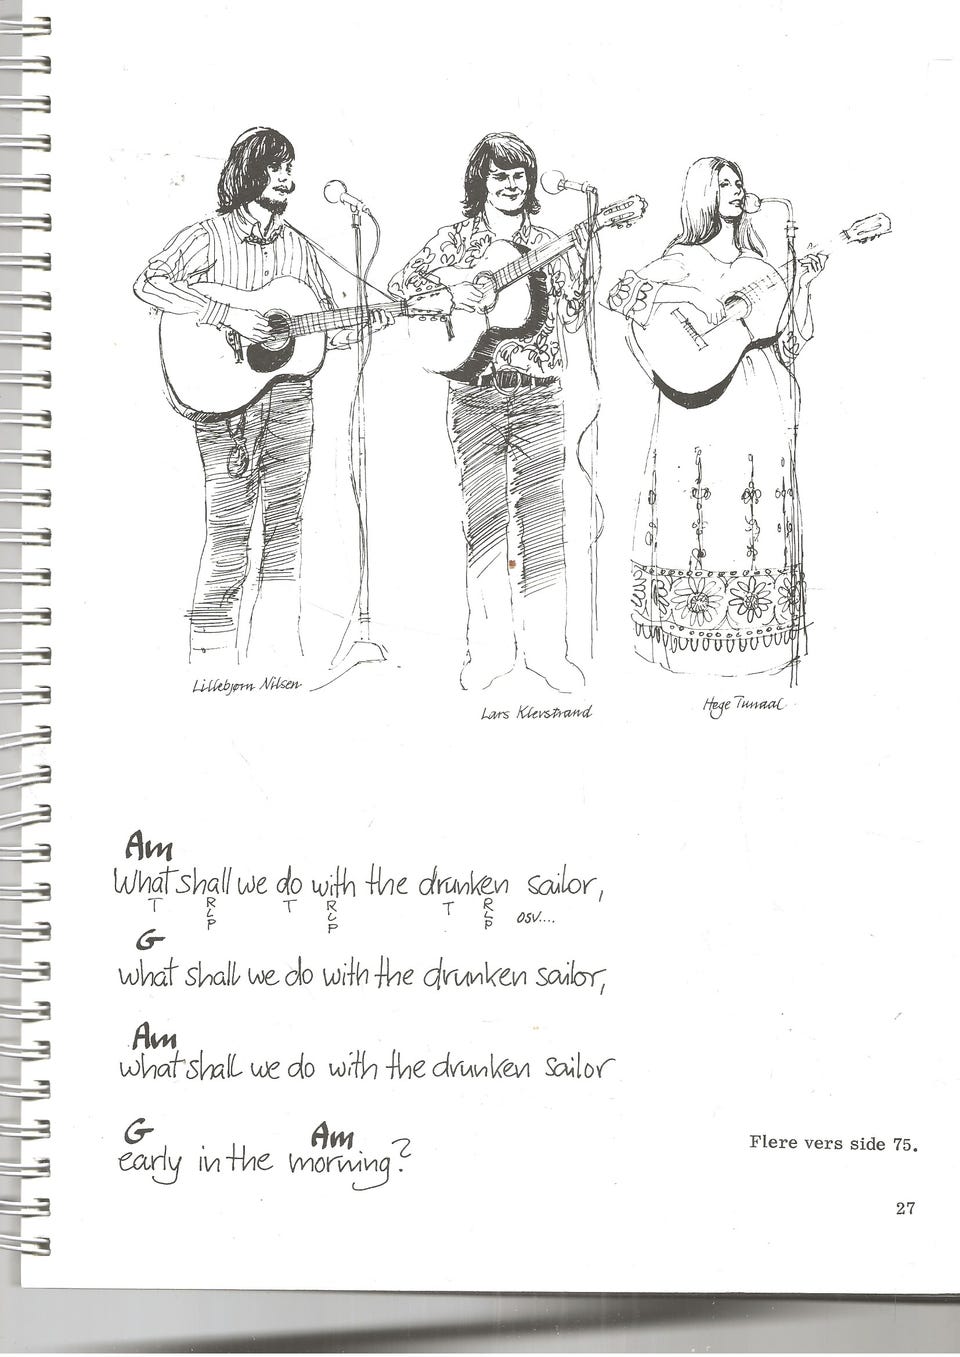 Lillebjørn Nilsen
Lars Klevstrand
Hege Tunaal
Am
What shall we do with the drunken sailor,
T RLP T RLP T RLP osv....
G
what shall we do with the drunken sailor,
Am
what shall we do with the drunken sailor
G Am
early in the morning?
Flere vers side 75.
27